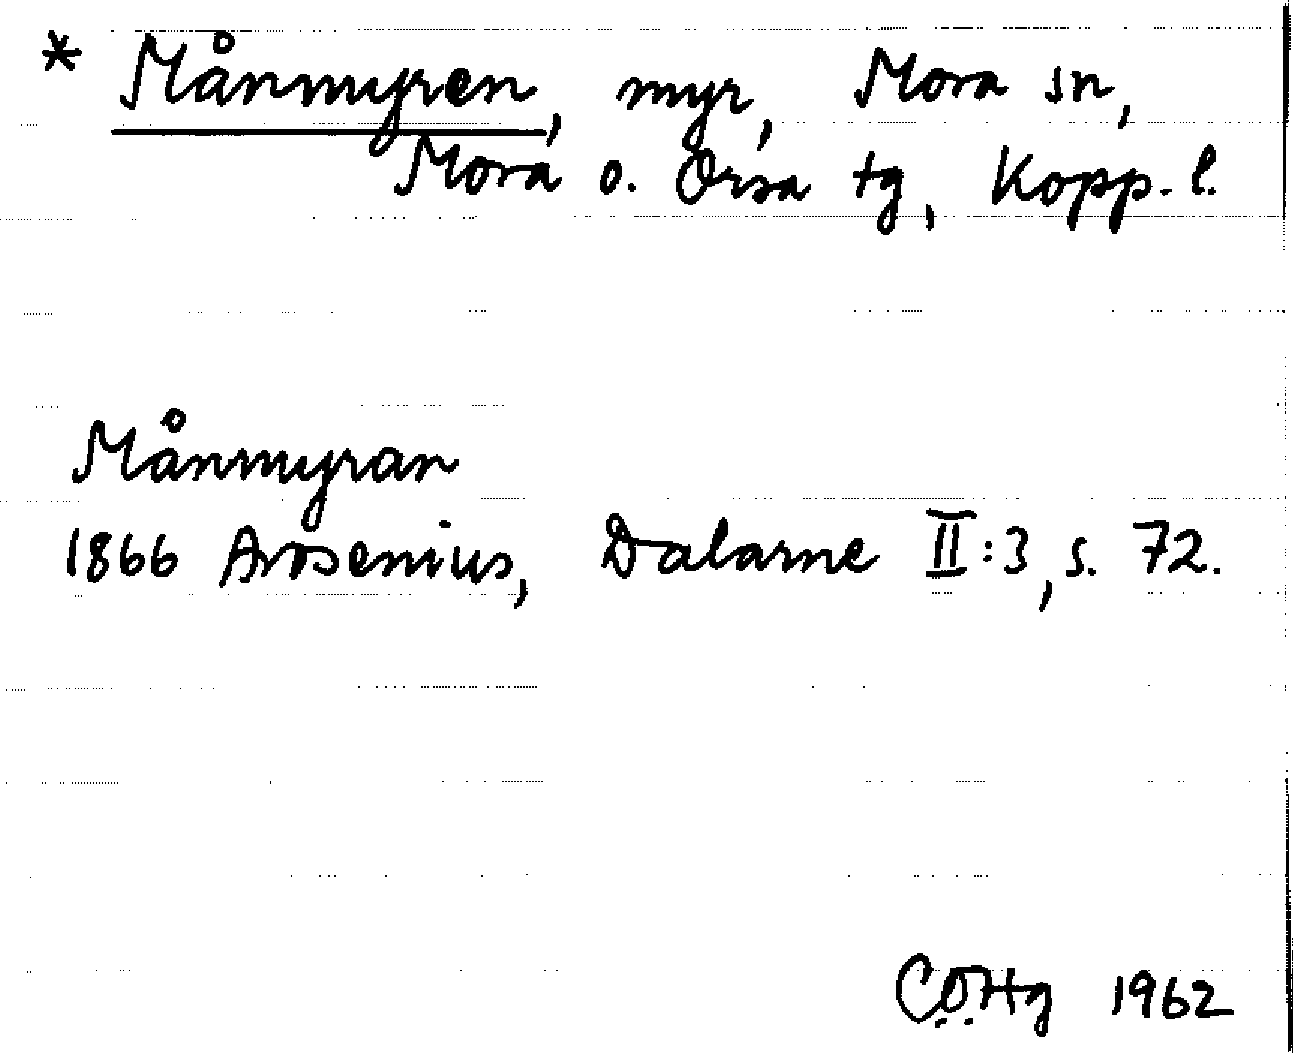 * Månmyren, myr, Mora sn,
Mora o. Orsa tg, Kopp. l.
Månmyran
1866 Arosenius, Dalarne II:3, s. 72.
C.O.Hg 1962